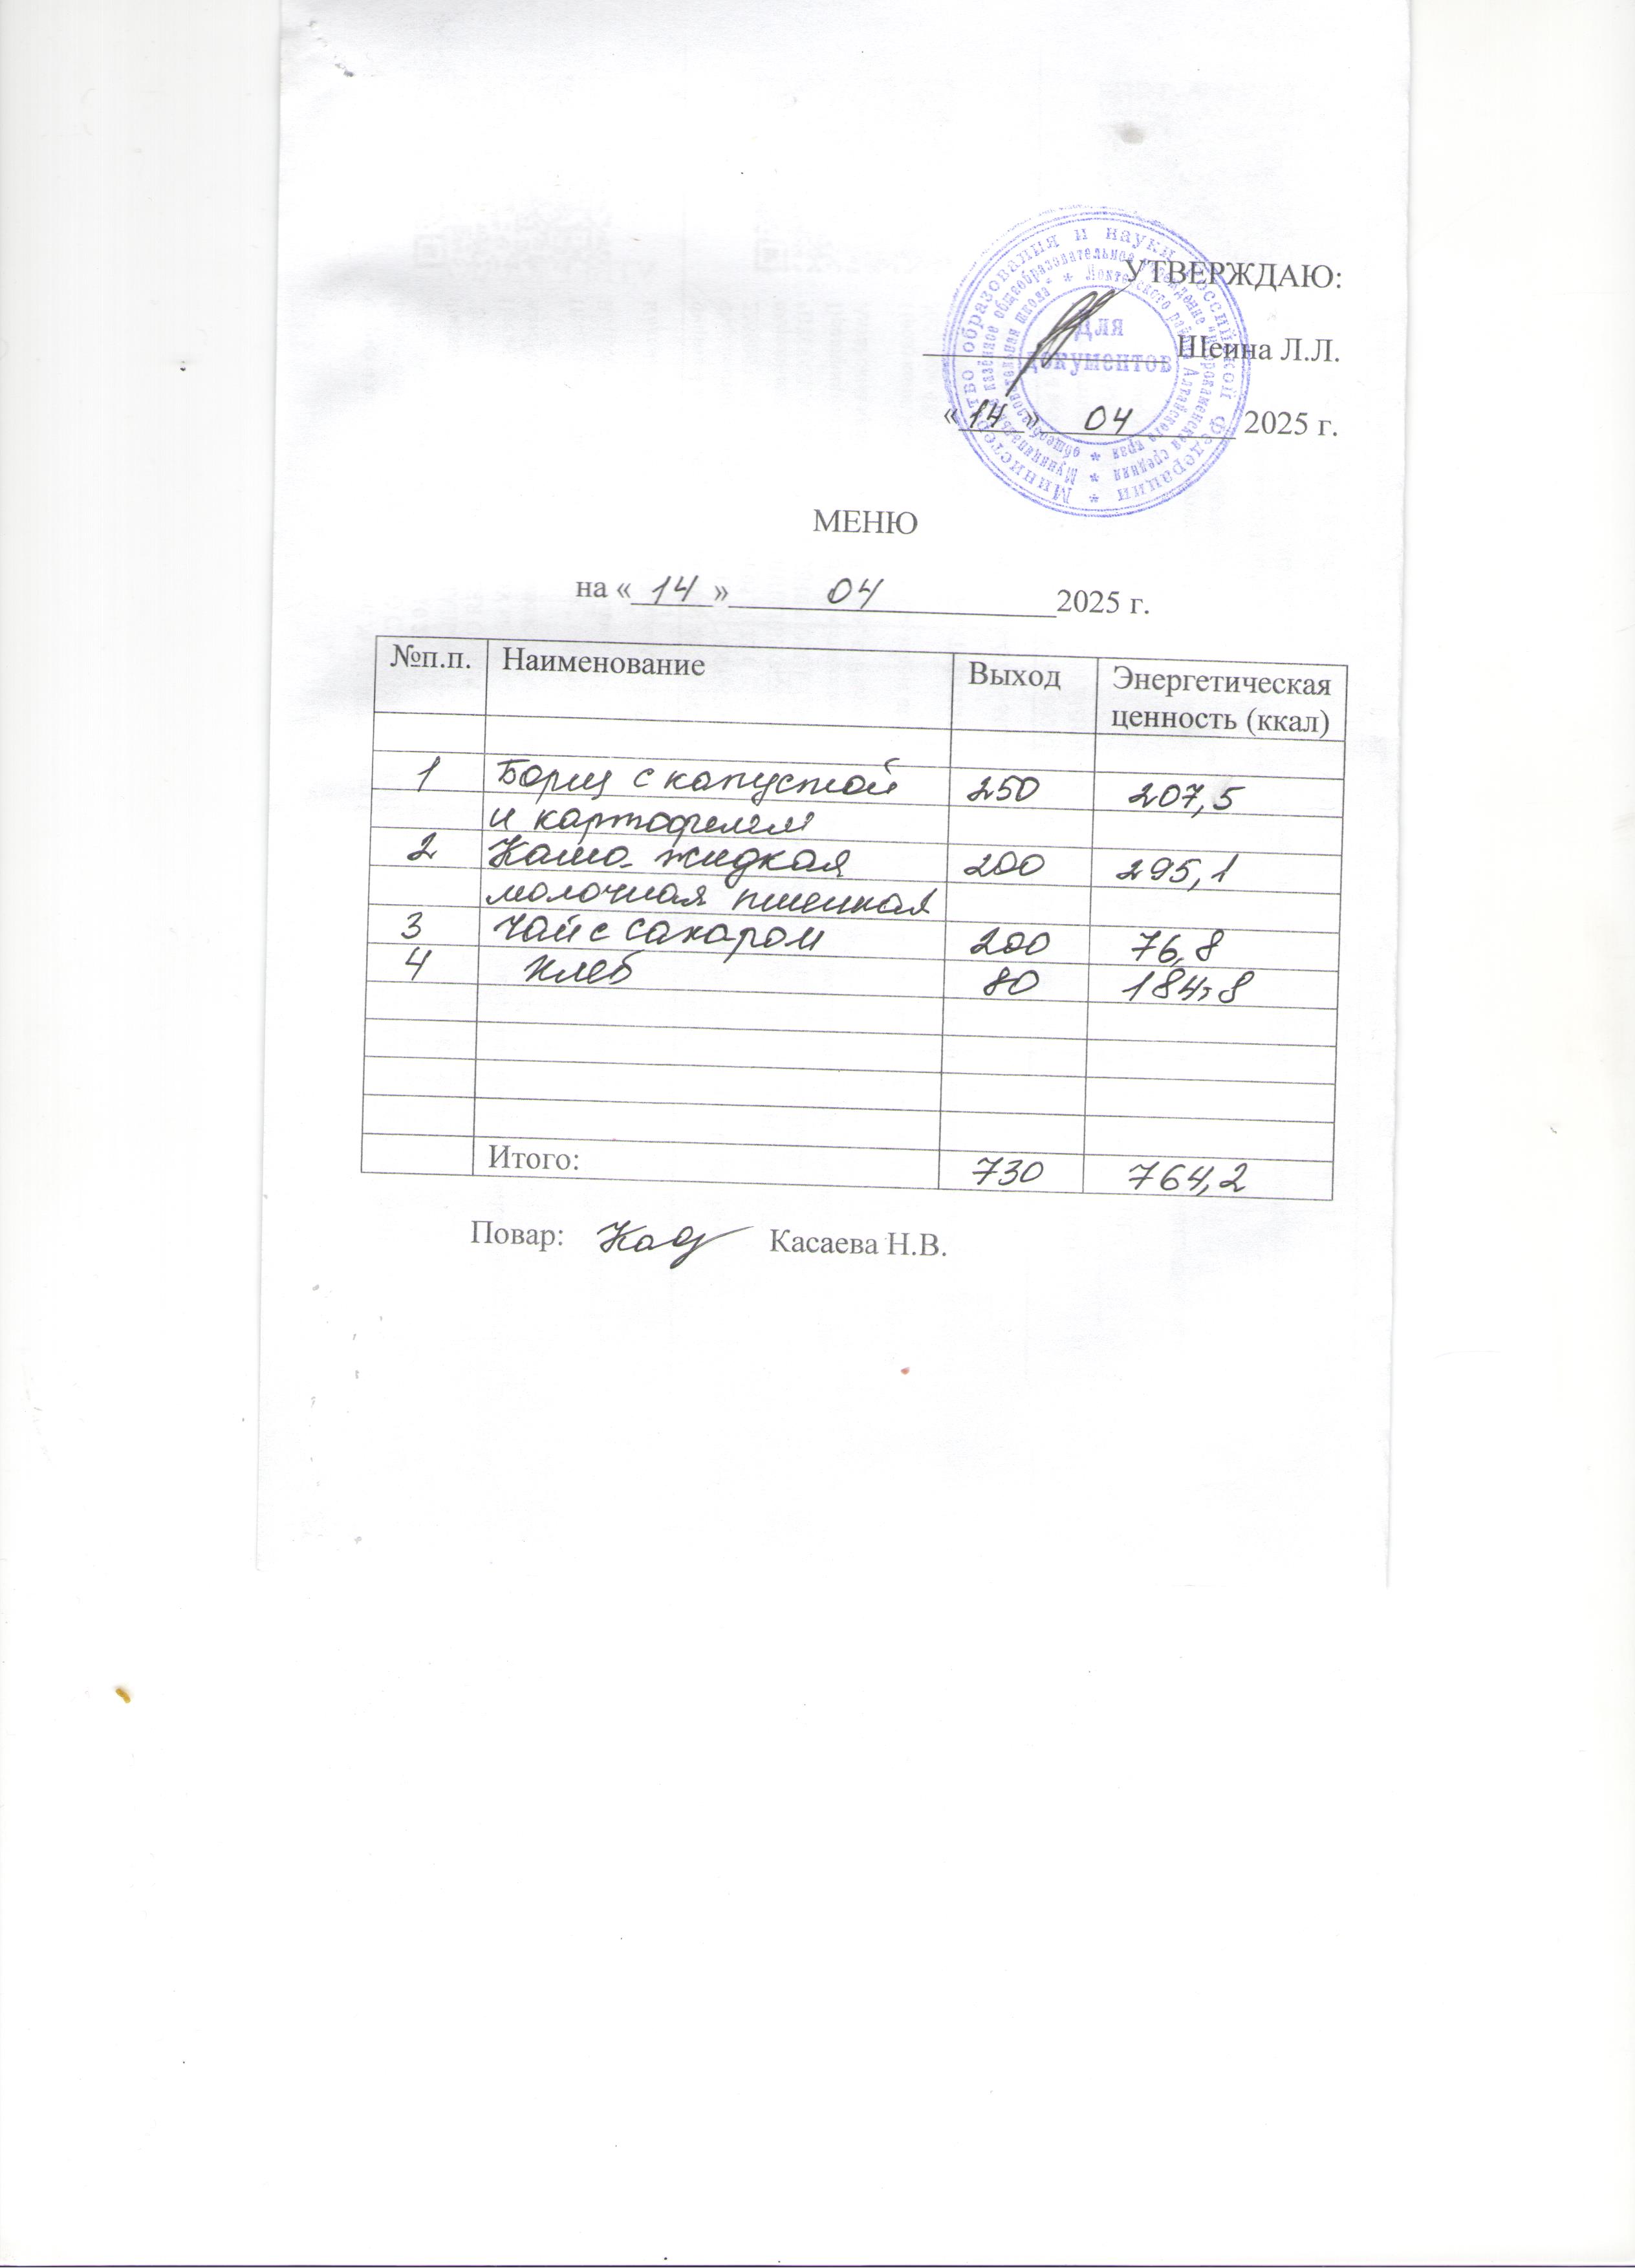 УТВЕРЖДАЮ:
Шеина Л.Л.
«14» 04 2025 г.
Министерство образования и науки Российской Федерации
для
документов
МЕНЮ
на «14» 04 2025 г.
№п.п. Наименование Выход Энергетическая
ценность (ккал)
1 Борщ с капустой 250 207,5
и картофелем
2 Каша жидкая 200 295,1
молочная пшенная
3 Чай с сахаром 200 76,8
4 Хлеб 80 184,8
Итого: 730 764,2
Повар: Касаева Н.В.